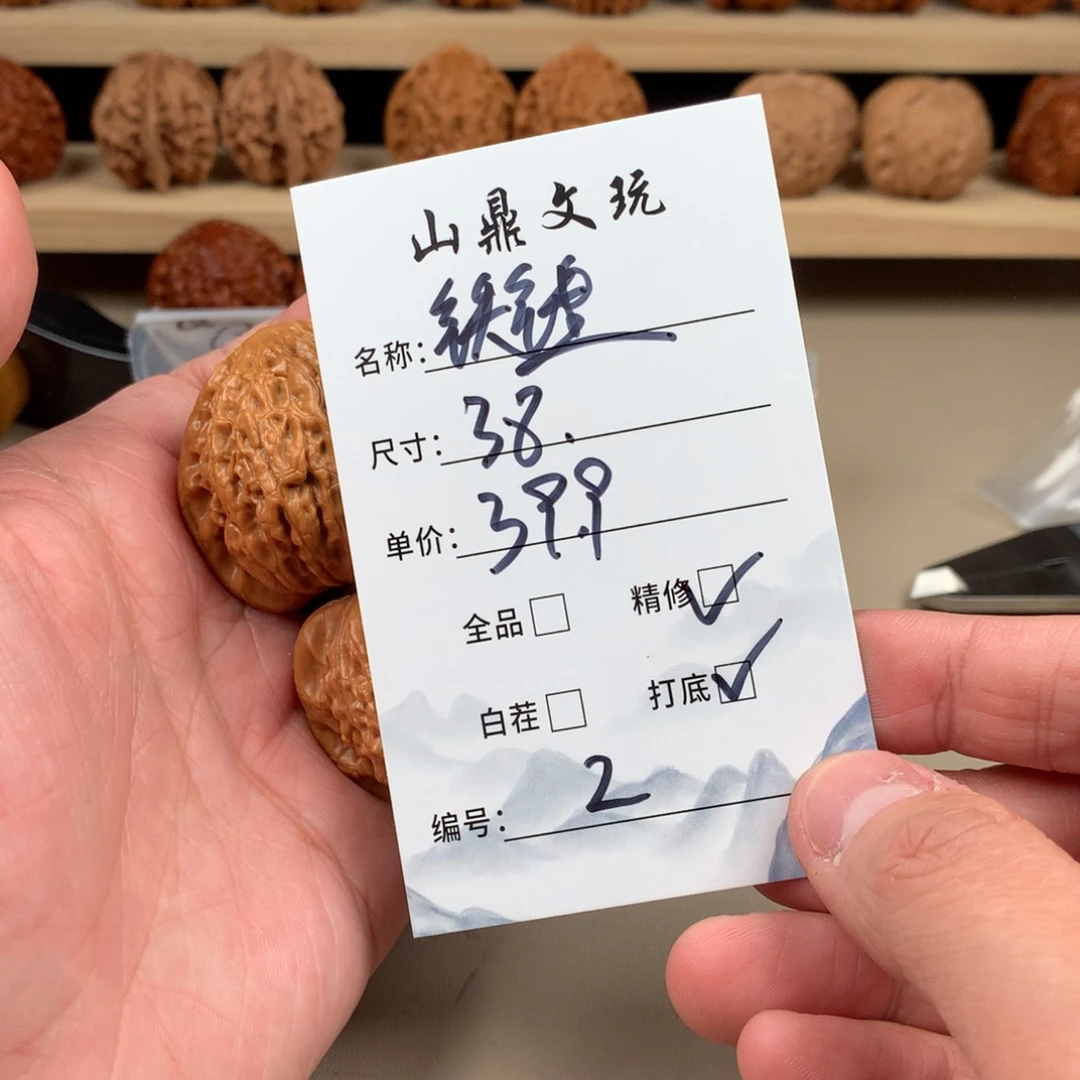 山鼎文玩
名称：铁
尺寸：38.
单价：399
全品 精修 ✓
白茬 打底 ✓
编号：2